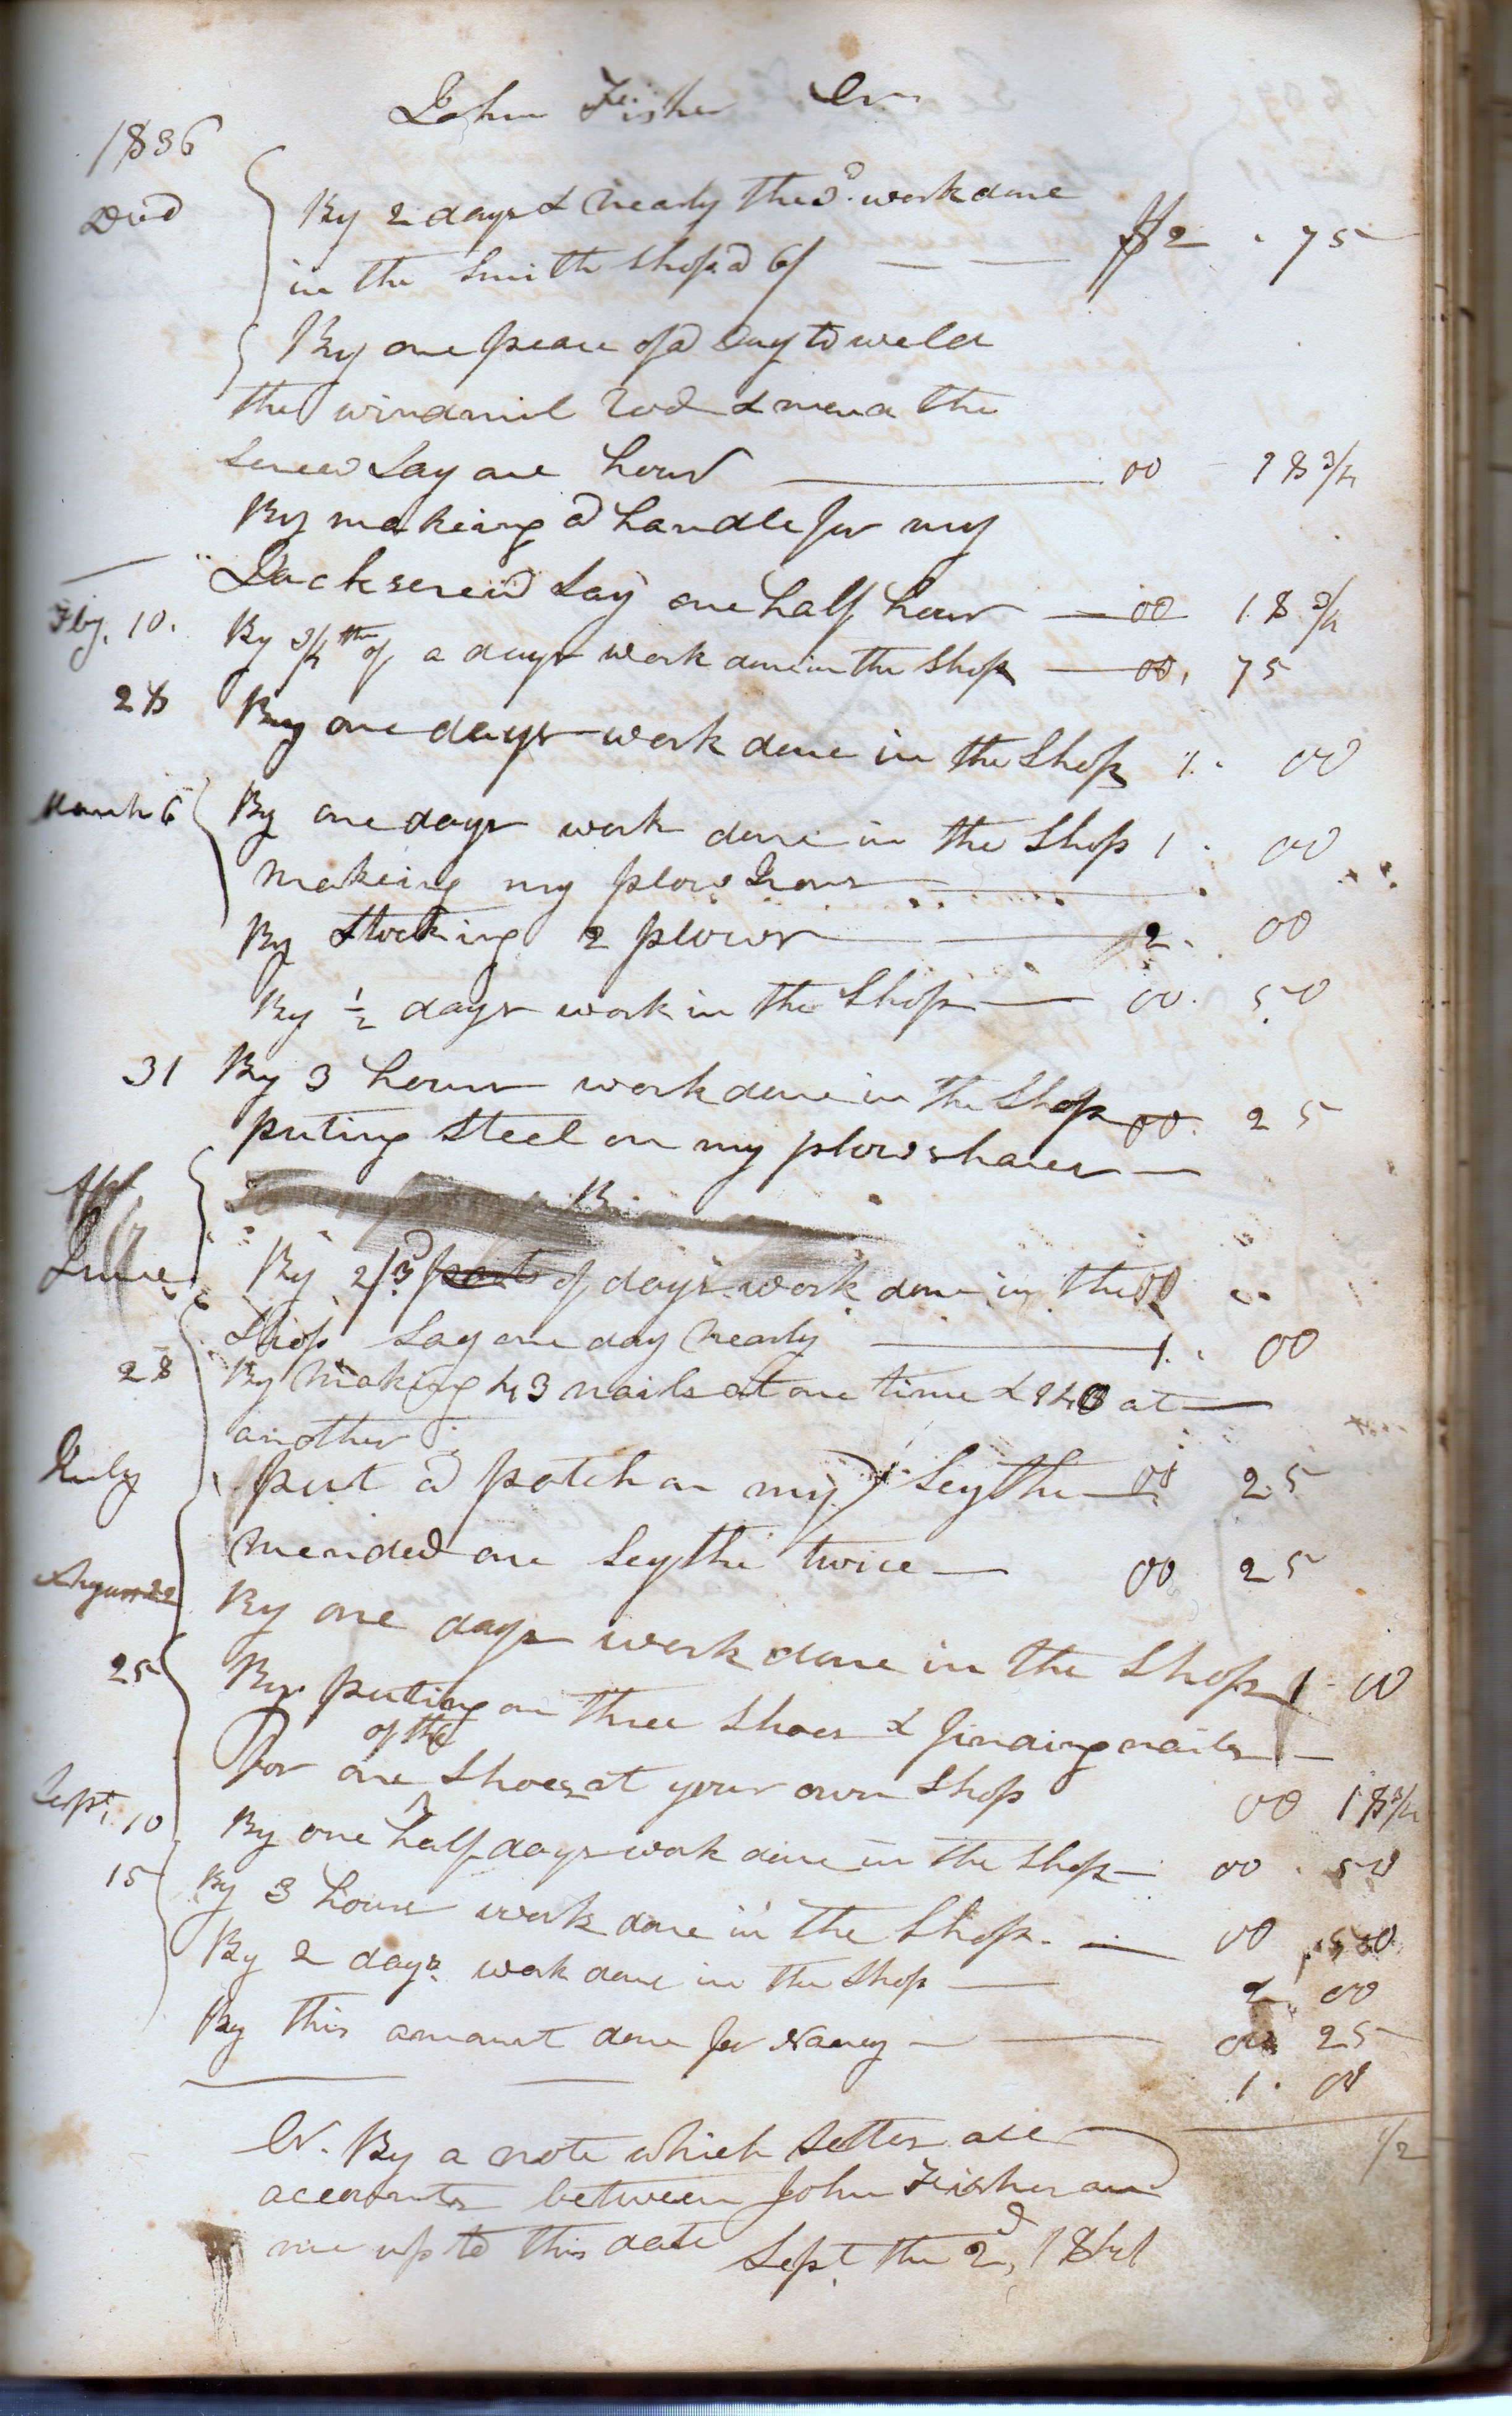 John Fisher Cr
1836
Decd By 2 days & nearly the 3d work done
in the Smith Shop @ 6/ $2 . 75
By one peace of a day to weld
the windmil Rod & mend the
Screw Say one hour 00 - 18 3/4
By making a handle for my
Jackscrew Say one half hour 00 18 3/4
Feby. 10. By 3/4 th of a days work done in the Shop 00, 75
28 By one days work done in the Shop 1. 00
March 6 By one days work done in the Shop 1. 00
making my plow Irons
By Stocking 2 plows 2. 00
By 1/2 days work in the Shop 00. 50
31 By 3 hours work done in the Shop 00. 25
puting Steel on my plowshares
Apl
By 2/3d parts of days work done in the 00
June
Shop Say one day nearly 1. 00
28 By making 43 nails at one time & 140 at
another
July put a patch on my Scythe 00 25
mended one Scythe twice 00 25
August 22 By one days work done in the Shop 1 - 00
25 By puting on three Shoes & finding nails
of the
for one Shoes at your own Shop 00 18 3/4
Sept. 10 By one half days work done in the Shop 00 . 50
15 By 3 hours work done in the Shop. 00 50
By 2 days work done in the Shop 2 00
By this amount done for Nancy 00 25
1. 00
Cr. By a note which Settles all 1/2
accounts between John Fisher and
me up to this date Sept the 2d, 1841